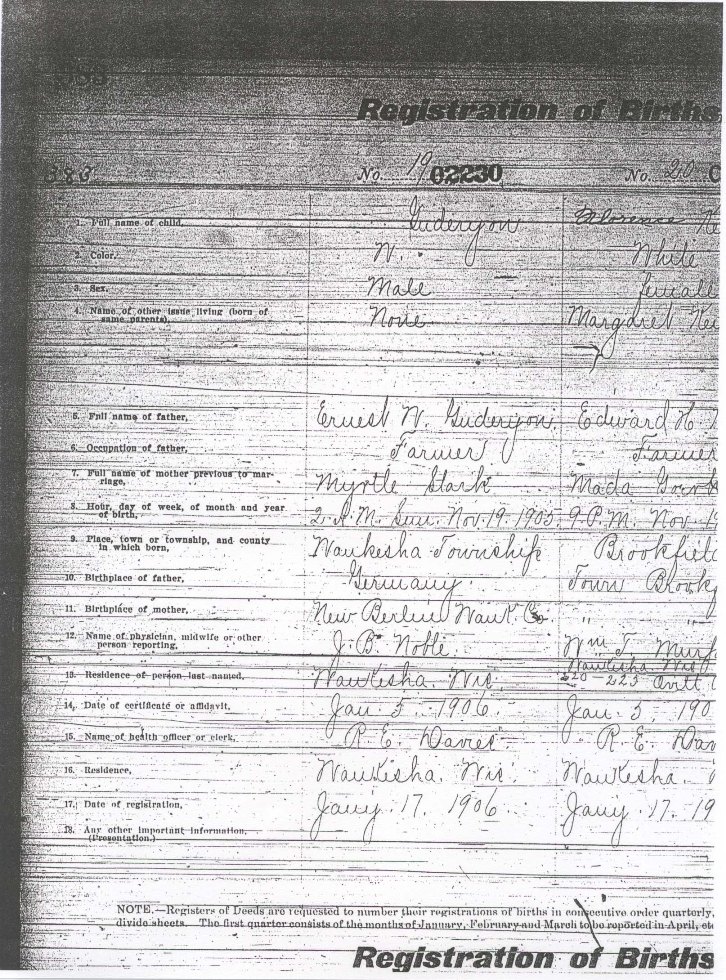 Registration of Births
383 No. 19 02230 No. 20
1. Full name of child, Guderyon Florence
2. Color. W. White
3. Sex. Male female
4. Name of other issue living (born of None Margaret
same parents),
5. Full name of father, Ernest W. Guderyon, Edward H.
6. Occupation of father, Farmer Farmer
7. Full name of mother previous to mar- Myrtle Stark Mada
riage,
8. Hour, day of week, of month and year 2 A.M. Sun. Nov. 19. 1905 9 P.M. Nov.
of birth,
9. Place, town or township, and county Waukesha Township Brookfield
in which born,
10. Birthplace of father, Germany. Town Brookf
11. Birthplace of mother, New Berlin Wauk Co " "
12. Name of physician, midwife or other J. B. Noble. Wm T. Murp
person reporting, Waukesha Wis
13. Residence of person last named, Waukesha. Wis. 220-223
14. Date of certificate or affidavit, Jan. 5. 1906. Jan. 5, 190
15. Name of health officer or clerk, R. E. Davies. R. E. Dav
16. Residence, Waukesha. Wis. Waukesha.
17. Date of registration, Jany. 17. 1906. Jany. 17. 19
18. Any other important information.
(Presentation.)
NOTE.—Registers of Deeds are requested to number their registrations of births in consecutive order quarterly,
divide sheets. The first quarter consists of the months of January, February and March to be reported in April, etc
Registration of Births